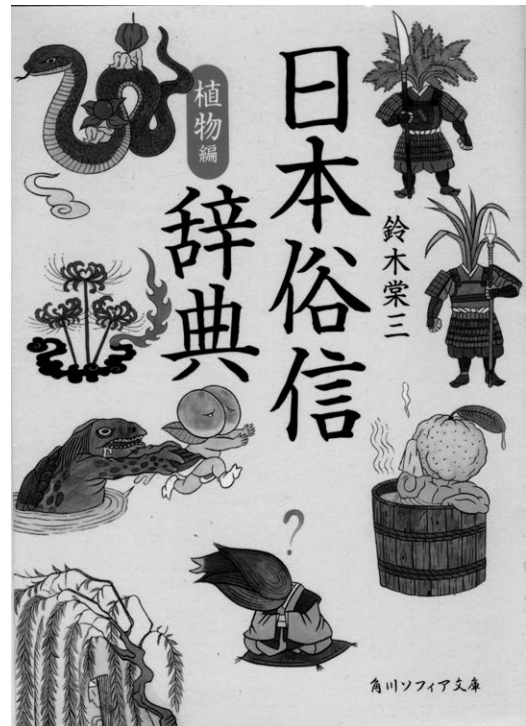 日本俗信
辞典
植物編
鈴木棠三
?
角川ソフィア文庫